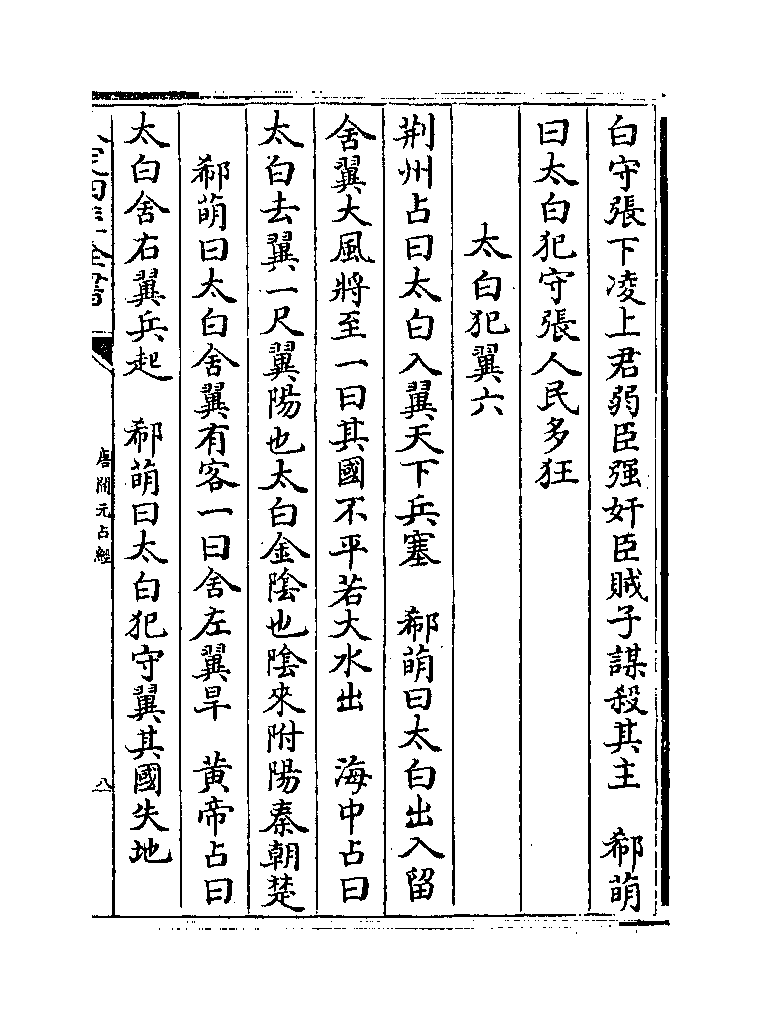 白守張下凌上君弱臣强奸臣賊子謀殺其主　郗萌
曰太白犯守張人民多狂
太白犯翼六
荆州占曰太白入翼天下兵塞　郗萌曰太白出入留
舍翼大風將至一曰其國不平若大水出　海中占曰
太白去翼一尺翼陽也太白金陰也陰來附陽秦朝楚
郗萌曰太白舍翼有客一曰舍左翼旱　黄帝占曰
太白舍右翼兵起　郗萌曰太白犯守翼其國失地
唐開元占經
八